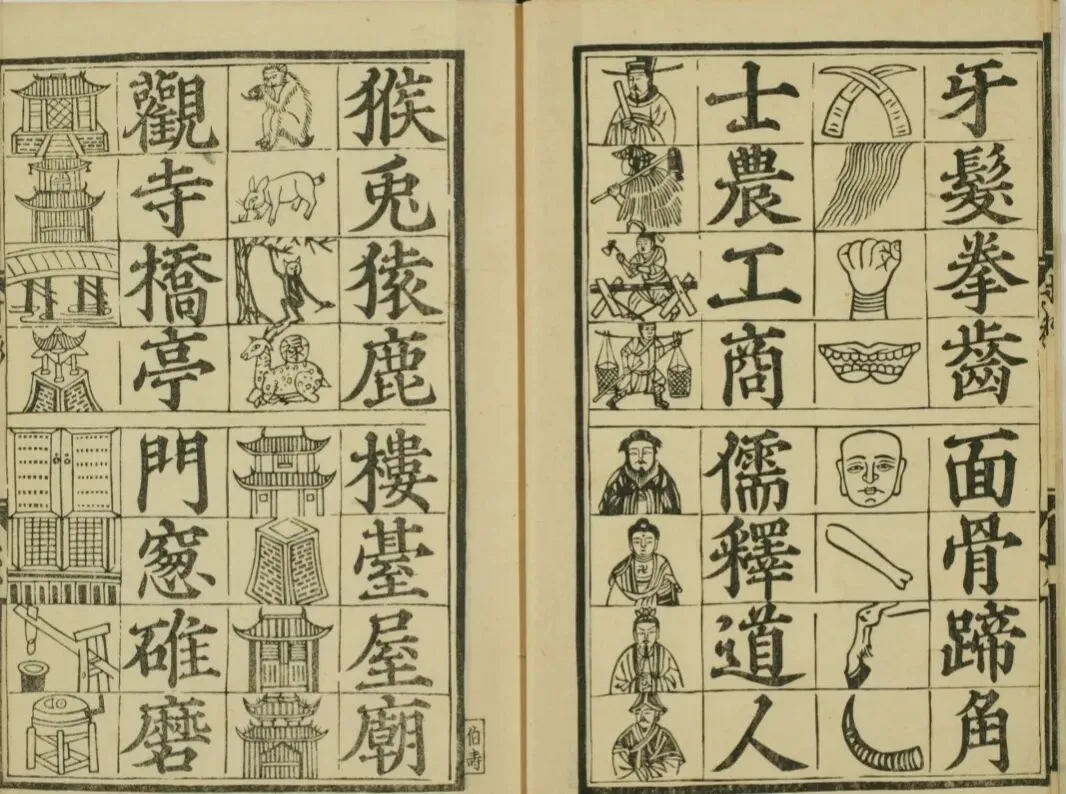 牙髮拳齒面骨蹄角
士農工商儒釋道人
猴兎猿鹿樓臺屋廟
觀寺橋亭門窻碓磨
伯寿